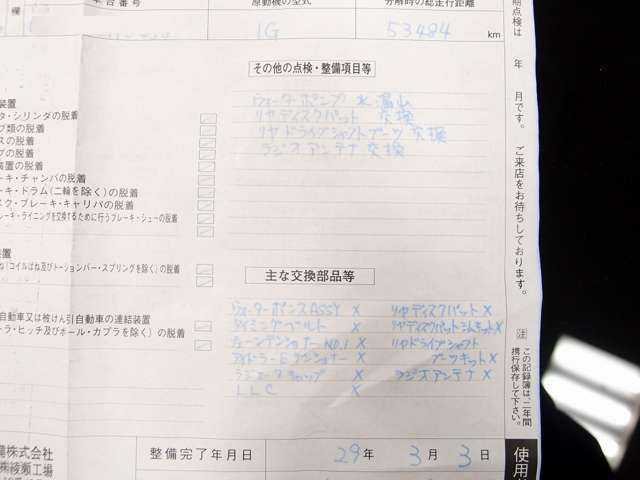 台番号 原動機の型式 分解時の総走行距離
欄 1G 53484 km
その他の点検・整備項目等
ウォーターポンプ 水漏れ
リヤディスクパット 交換
リヤドライブシャフトブーツ 交換
ラジオアンテナ 交換
装置
タ・シリンダの脱着
ブ類の脱着
スの脱着
プの脱着
装置の脱着
ーキ・チャンバの脱着
ーキ・ドラム(二輪を除く)の脱着
スク・ブレーキ・キャリパの脱着
レーキ・ライニングを交換するために行うブレーキ・シューの脱着
装置
ね(コイルばね及びトーションバー・スプリングを除く)の脱着
自動車又は被けん引自動車の連結装置
ーラ・ヒッチ及びボール・カプラを除く)の脱着
主な交換部品等
ウォーターポンプASSY × リヤディスクパット ×
タイミングベルト × リヤディスクパットシムキット ×
チェーンテンショナー NO.1 × リヤドライブシャフト
アイドラーEテンショナー × ブーツキット ×
ラジエータキャップ × ラジオアンテナ ×
LLC ×
備株式会社
綾瀬工場
整備完了年月日 29年 3月 3日
期点検は 年 月です。 ご来店をお待ちしております。
注 この記録簿は、二年間携行保存して下さい。
使用